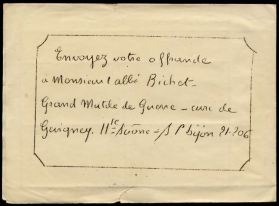 Envoyez votre offrande
a Monsieur l'abbé Bichet-
Grand Mutilé de Guerre - curé de
Gevigney. Hte Saône - S/ Dijon 21-206